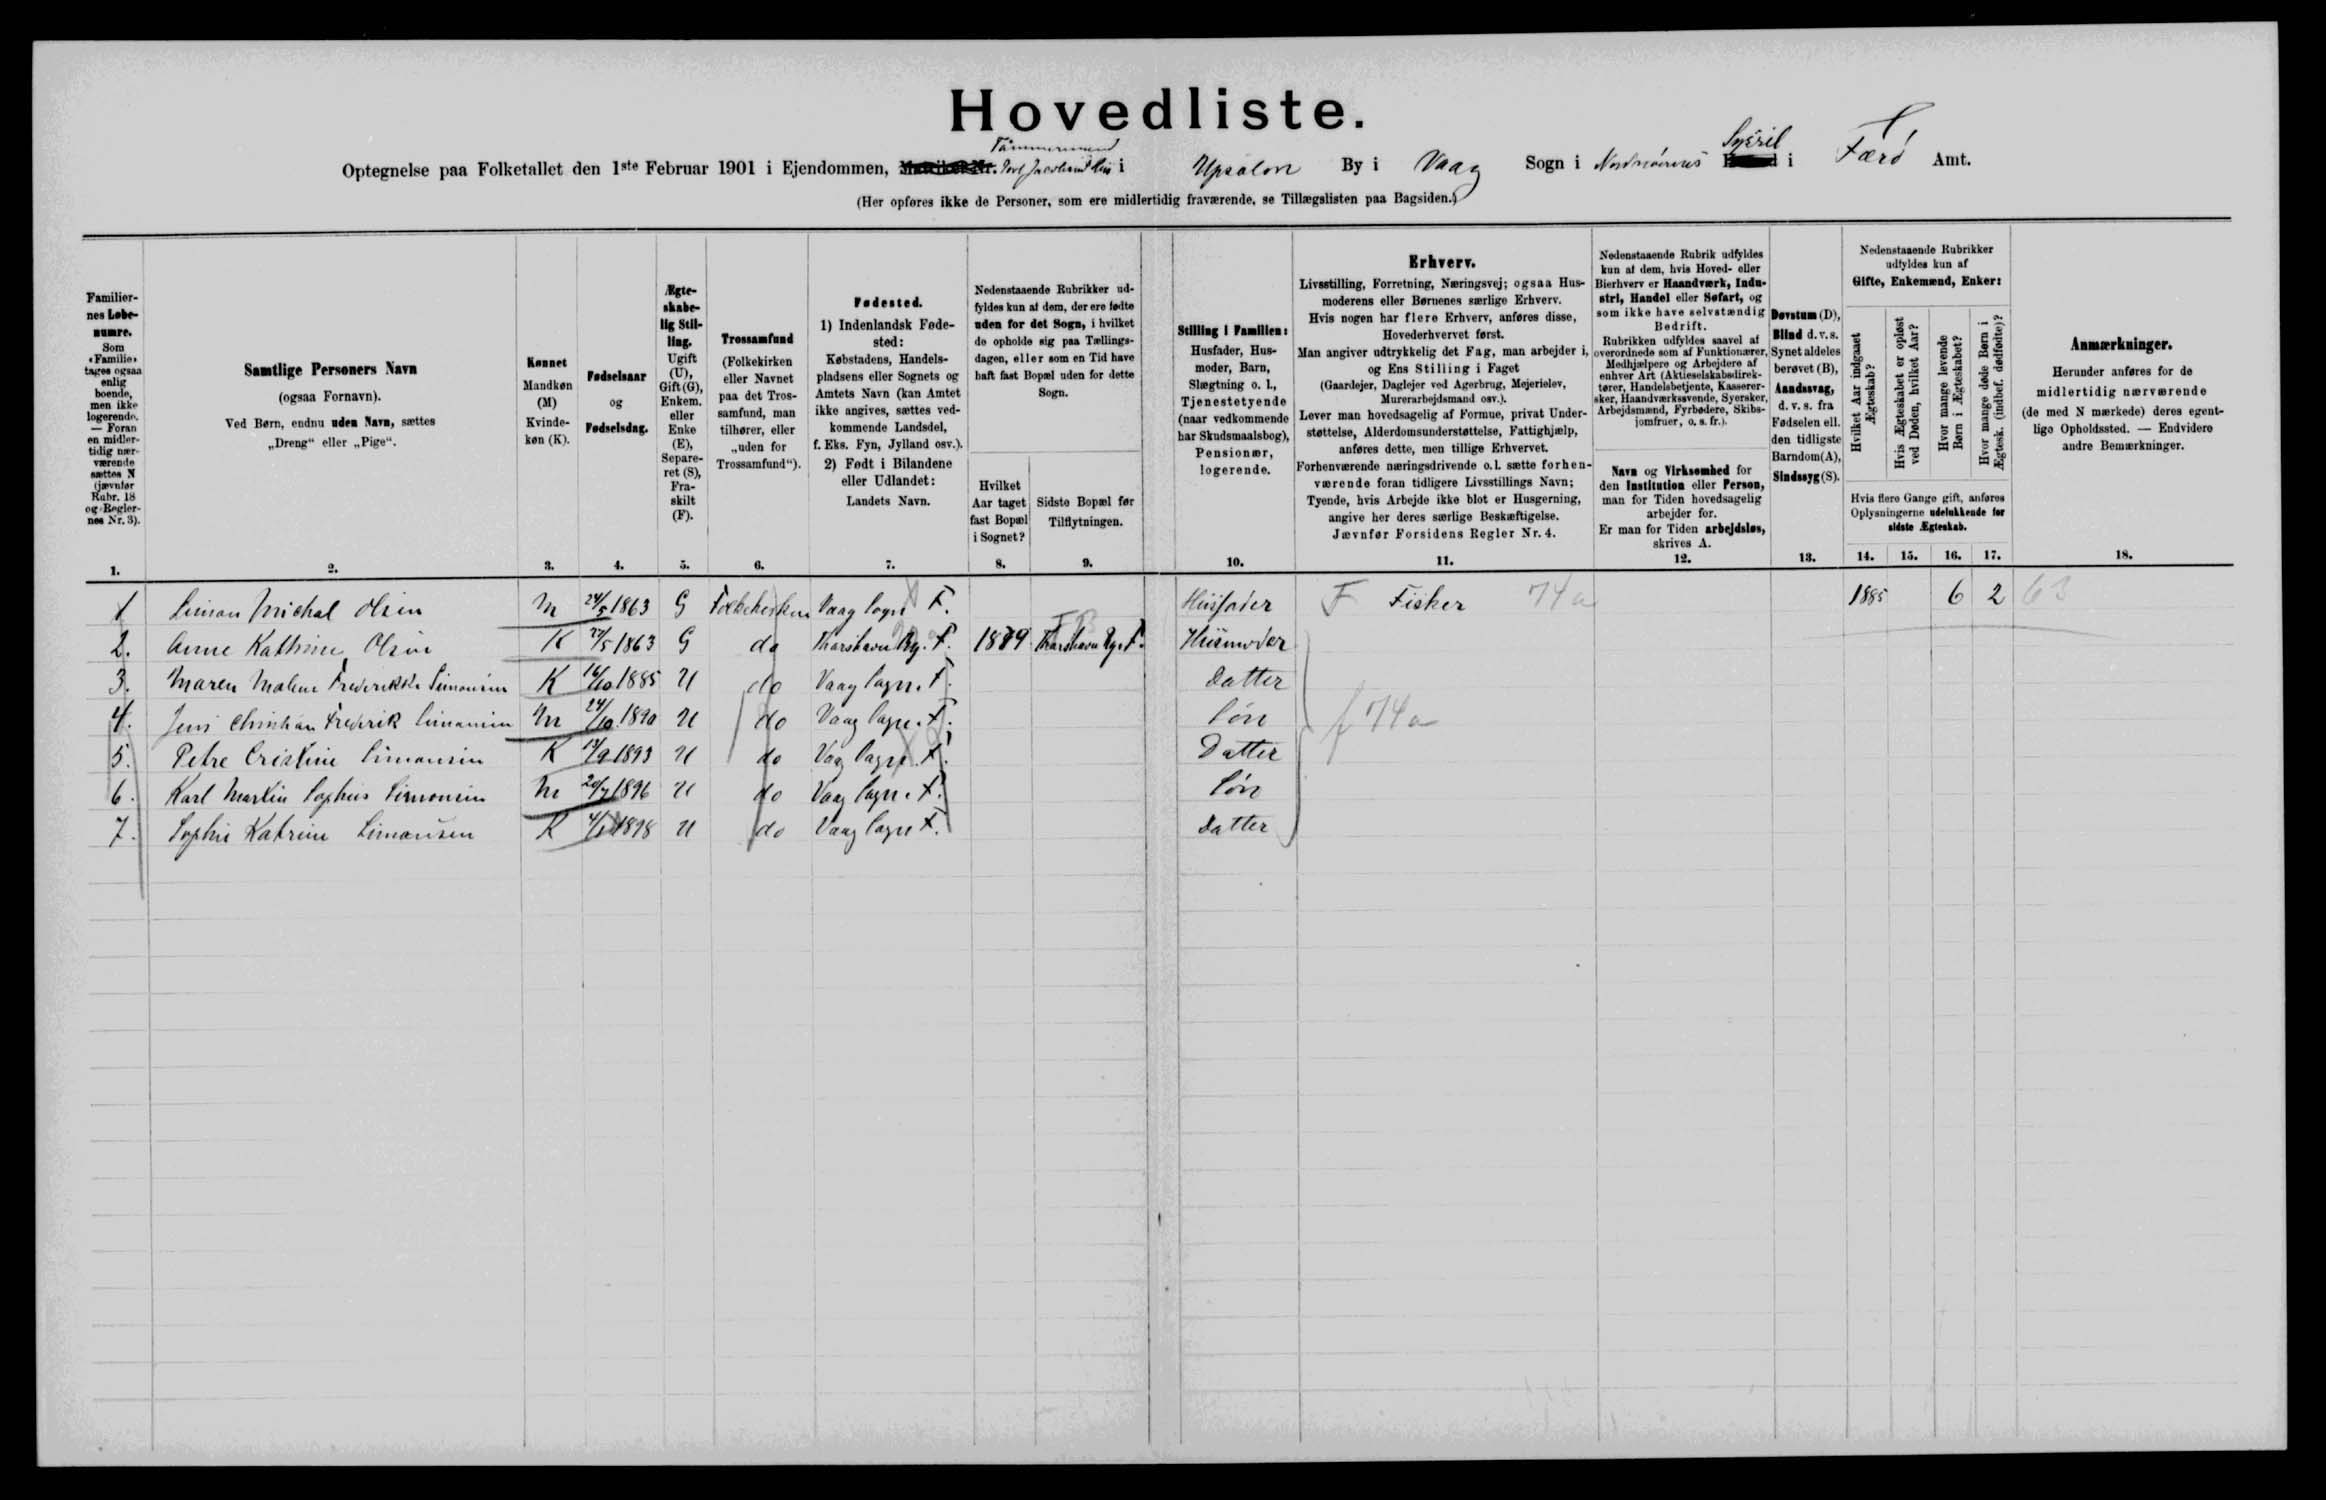 Hovedliste.
Optegnelse paa Folketallet den 1ste Februar 1901 i Ejendommen, Tømmermand Poul Jacobsens Hus i Upsalon By i Vaag Sogn i Nordnæs Syssel i Færø Amt.
(Her opføres ikke de Personer, som ere midlertidig fraværende, se Tillægslisten paa Bagsiden.)
Familiernes Løbenumre.
Som «Familie» tages ogsaa enlig boende, men ikke logerende. — Foran en midlertidig nærværende sættes N (jævnfør Rubr. 18 og Reglernes Nr. 3).
1.
Samtlige Personers Navn
(ogsaa Fornavn).
Ved Børn, endnu uden Navn, sættes
„Dreng“ eller „Pige“.
2.
Kønnet
Mandkøn (M)
Kvindekøn (K).
3.
Fødselsaar
og
Fødselsdag.
4.
Ægteskabelig Stilling.
Ugift (U), Gift (G), Enkem. eller Enke (E), Separeret (S), Fraskilt (F).
5.
Trossamfund
(Folkekirken eller Navnet paa det Trossamfund, man tilhører, eller „uden for Trossamfund“).
6.
Fødested.
1) Indenlandsk Fødested:
Købstadens, Handelspladsens eller Sognets og Amtets Navn (kan Amtet ikke angives, sættes vedkommende Landsdel, f. Eks. Fyn, Jylland osv.).
2) Født i Bilandene eller Udlandet:
Landets Navn.
7.
Nedenstaaende Rubrikker udfyldes kun af dem, der ere fødte uden for det Sogn, i hvilket de opholde sig paa Tællingsdagen, eller som en Tid have haft fast Bopæl uden for dette Sogn.
Hvilket Aar taget fast Bopæl i Sognet?
8.
Sidste Bopæl før Tilflytningen.
9.
Stilling i Familien:
Husfader, Husmoder, Barn, Slægtning o. l., Tjenestetyende (naar vedkommende har Skudsmaalsbog), Pensionær, logerende.
10.
Erhverv.
Livsstilling, Forretning, Næringsvej; ogsaa Husmoderens eller Børnenes særlige Erhverv.
Hvis nogen har flere Erhverv, anføres disse, Hovederhvervet først.
Man angiver udtrykkelig det Fag, man arbejder i, og Ens Stilling i Faget
(Gaardejer, Daglejer ved Agerbrug, Mejerielev, Murerarbejdsmand osv.).
Lever man hovedsagelig af Formue, privat Understøttelse, Alderdomsunderstøttelse, Fattighjælp, anføres dette, men tillige Erhvervet.
Forhenværende næringsdrivende o. l. sætte forhenværende foran tidligere Livsstillings Navn;
Tyende, hvis Arbejde ikke blot er Husgerning, angive her deres særlige Beskæftigelse.
Jævnfør Forsidens Regler Nr. 4.
11.
Nedenstaaende Rubrik udfyldes kun af dem, hvis Hoved- eller Bierhverv er Haandværk, Industri, Handel eller Søfart, og som ikke have selvstændig Bedrift.
Rubrikken udfyldes saavel af overordnede som af Funktionærer, Medhjælpere og Arbejdere af enhver Art (Aktieselskabsdirektører, Handelsbetjente, Kasserersker, Haandværkssvende, Syersker, Arbejdsmænd, Fyrbødere, Skibsjomfruer, o. s. fr.).
Navn og Virksomhed for den Institution eller Person, man for Tiden hovedsagelig arbejder for.
Er man for Tiden arbejdsløs, skrives A.
12.
Døvstum (D), Blind d. v. s. Synet aldeles berøvet (B), Aandssvag, d. v. s. fra Fødselen ell. den tidligste Barndom (A), Sindssyg (S).
13.
Nedenstaaende Rubrikker udfyldes kun af
Gifte, Enkemænd, Enker:
Hvilket Aar indgaaet Ægteskab?
Hvis Ægteskabet er opløst ved Døden, hvilket Aar?
Hvor mange levende Børn i Ægteskabet?
Hvor mange døde Børn i Ægtesk. (indbef. dødfødte)?
Hvis flere Gange gift, anføres Oplysningerne udelukkende for sidste Ægteskab.
14. 15. 16. 17.
Anmærkninger.
Herunder anføres for de midlertidig nærværende (de med N mærkede) deres egentlige Opholdssted. — Endvidere andre Bemærkninger.
18.
1 Simon Michal Olsen M 24/5 1863 G Folkekirken Vaag Sogn F. Husfader F Fisker 74a 1885 6 2 63
2. Anne Kathrine Olsen K 27/5 1863 G do Thorshavn By. F. 1879 Thorshavn By. F. Husmoder
3. Maren Malene Frederikke Simonsen K 16/10 1885 U do Vaag Sogn. F. Datter
4. Jens Christian Frederik Simonsen M 24/10 1890 U do Vaag Sogn. F. Søn f 74a
5. Petre Cristine Simonsen K 13/9 1893 U do Vaag Sogn. F. Datter
6. Karl Martin Sophus Simonsen M 20/7 1896 U do Vaag Sogn. F. Søn
7. Sophie Katrine Simonsen K 4/1 1898 U do Vaag Sogn F. Datter